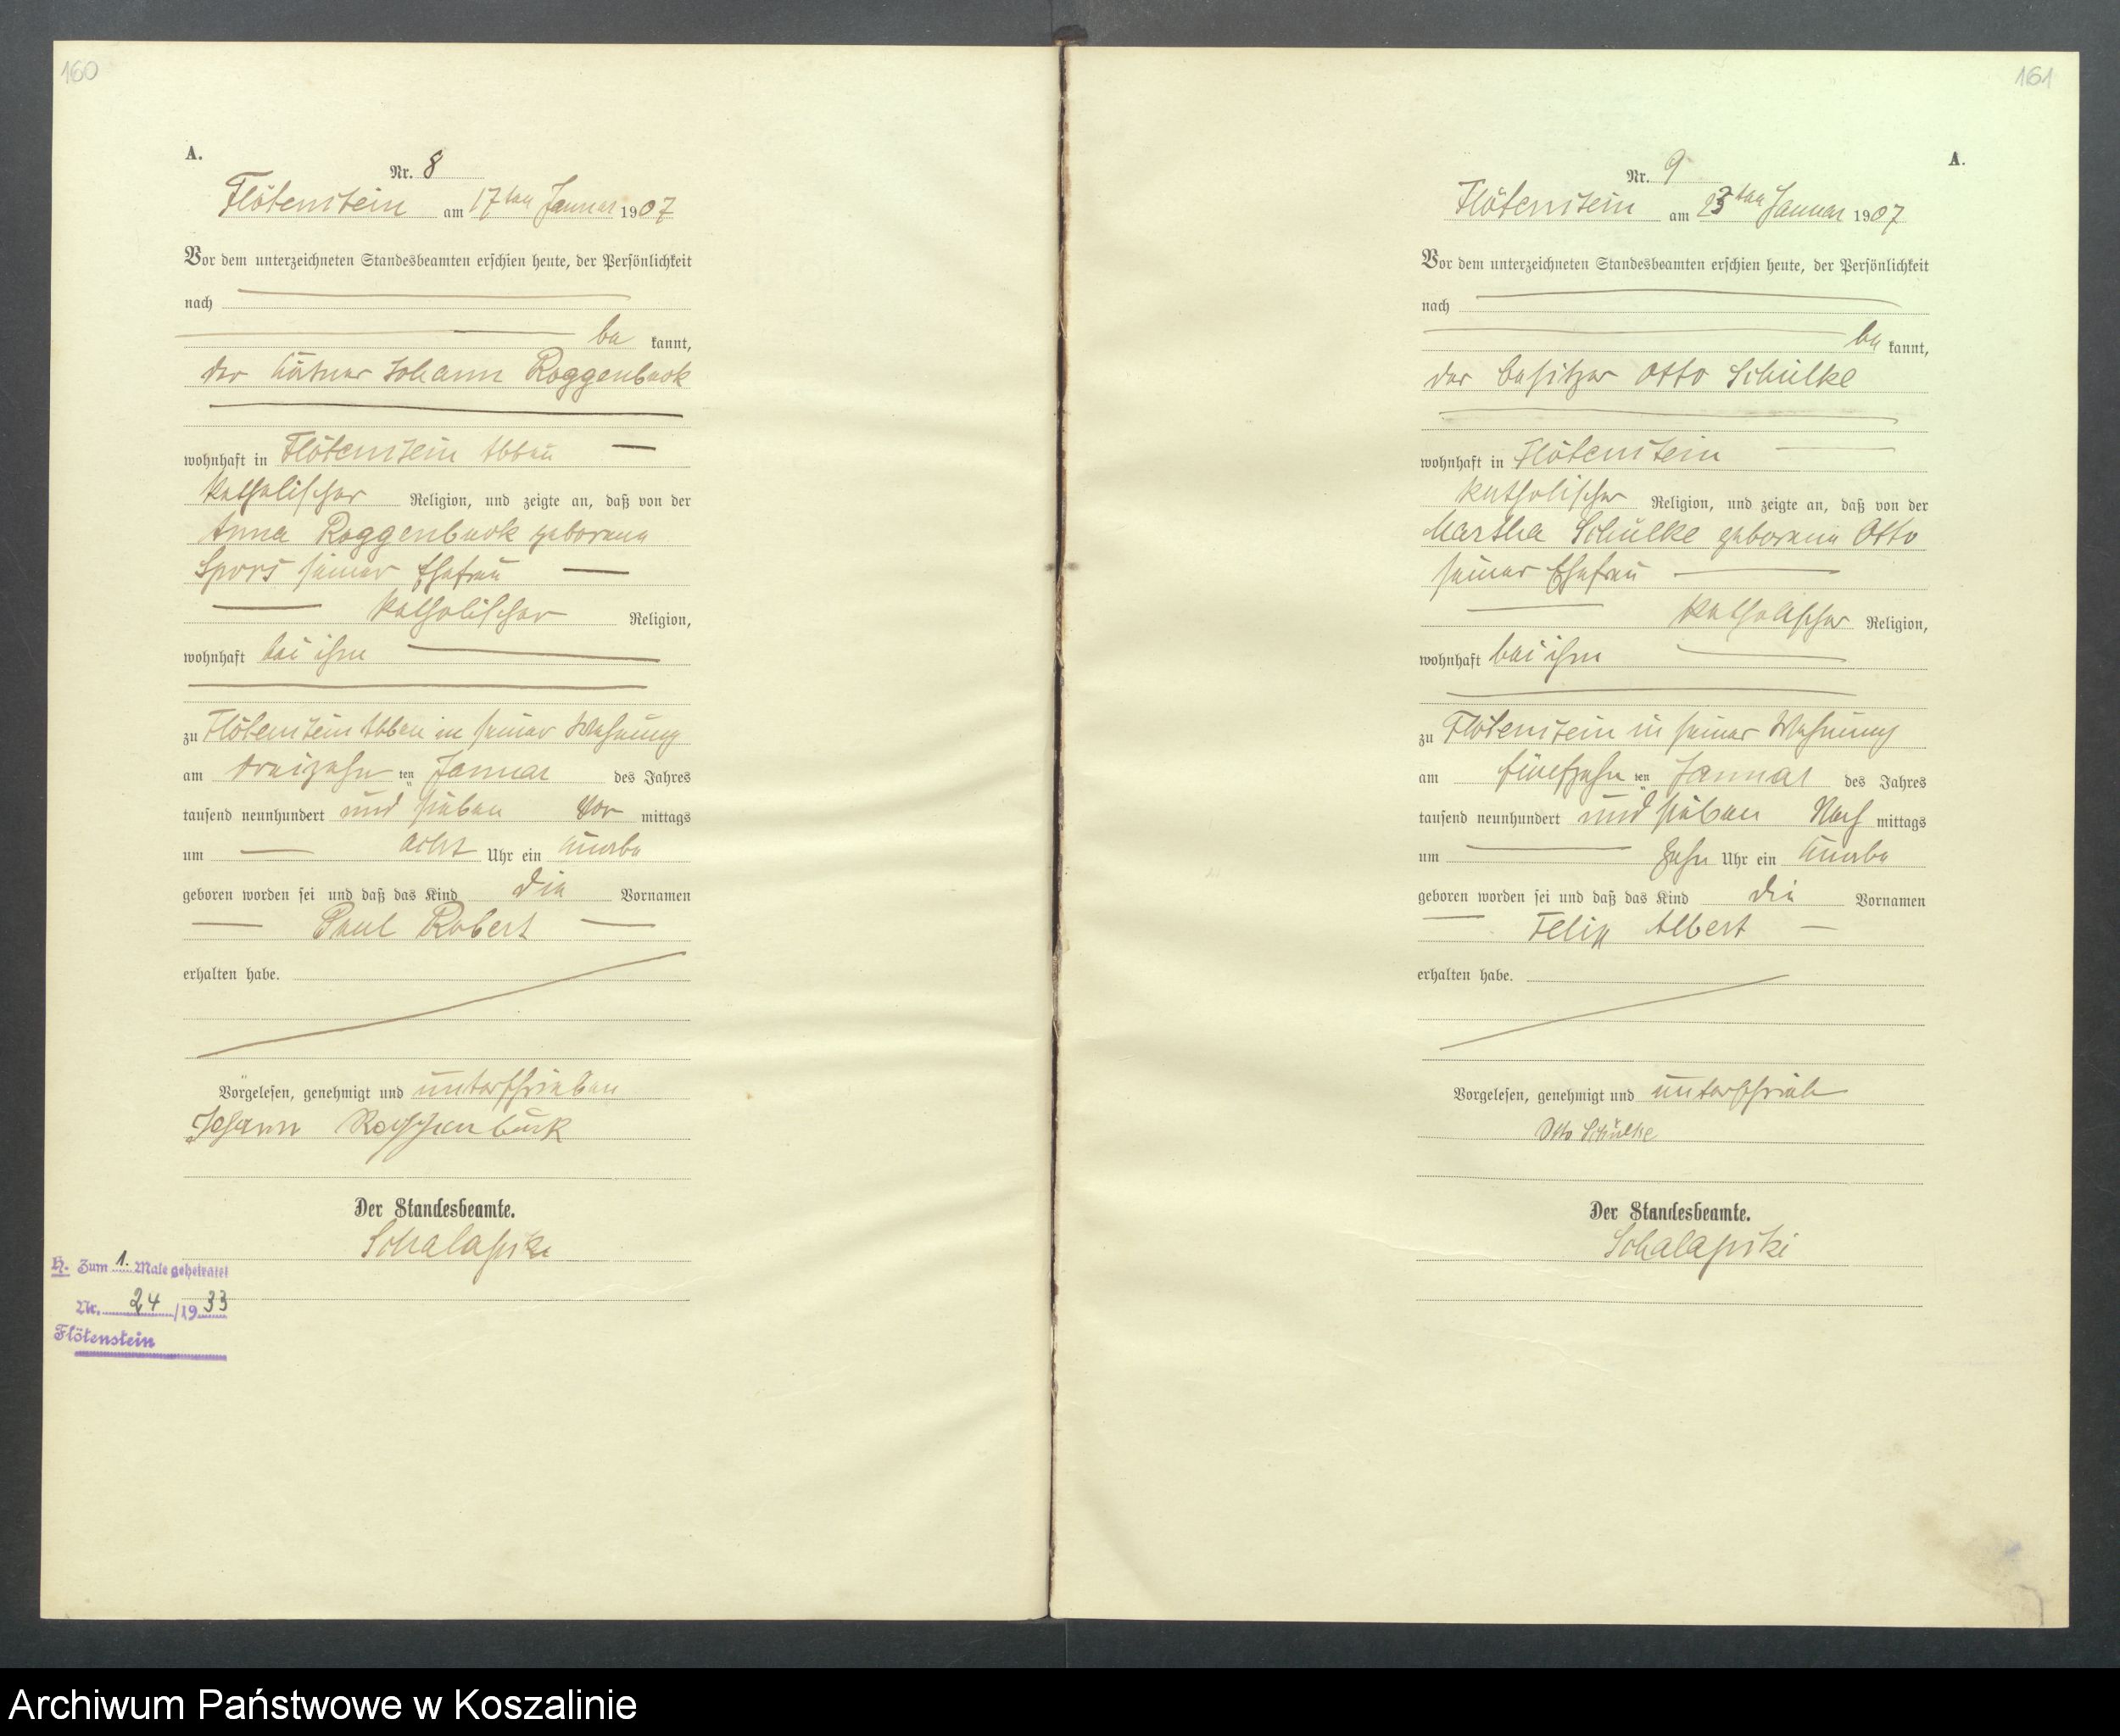 160
A.
Nr. 8
Flötenstein am 17ten Januar 1907
Vor dem unterzeichneten Standesbeamten erschien heute, der Persönlichkeit
nach
be kannt,
der Kätner Johann Roggenbuck
wohnhaft in Flötenstein Abbau
katholischer Religion, und zeigte an, daß von der
Anna Roggenbuck geborene
Spors seiner Ehefrau
katholischer Religion,
wohnhaft bei ihm
zu Flötenstein Abbau in seiner Wohnung
am dreizehn ten Januar des Jahres
tausend neunhundert und sieben Vor mittags
um acht Uhr ein Knabe
geboren worden sei und daß das Kind die Vornamen
Paul Robert
erhalten habe.
Vorgelesen, genehmigt und unterschrieben
Johann Roggenbuck
Der Standesbeamte.
Schalapski
H. Zum 1. Male geheiratet
Nr. 24/1933
Flötenstein
161
A.
Nr. 9
Flötenstein am 23ten Januar 1907
Vor dem unterzeichneten Standesbeamten erschien heute, der Persönlichkeit
nach
be kannt,
der Besitzer Otto Schülke
wohnhaft in Flötenstein
katholischer Religion, und zeigte an, daß von der
Martha Schülke geborene Otto
seiner Ehefrau
katholischer Religion,
wohnhaft bei ihm
zu Flötenstein in seiner Wohnung
am fünfzehn ten Januar des Jahres
tausend neunhundert und sieben Nach mittags
um zehn Uhr ein Knabe
geboren worden sei und daß das Kind die Vornamen
Felix Albert
erhalten habe.
Vorgelesen, genehmigt und unterschrieb
Otto Schülke
Der Standesbeamte.
Schalapski
Archiwum Państwowe w Koszalinie